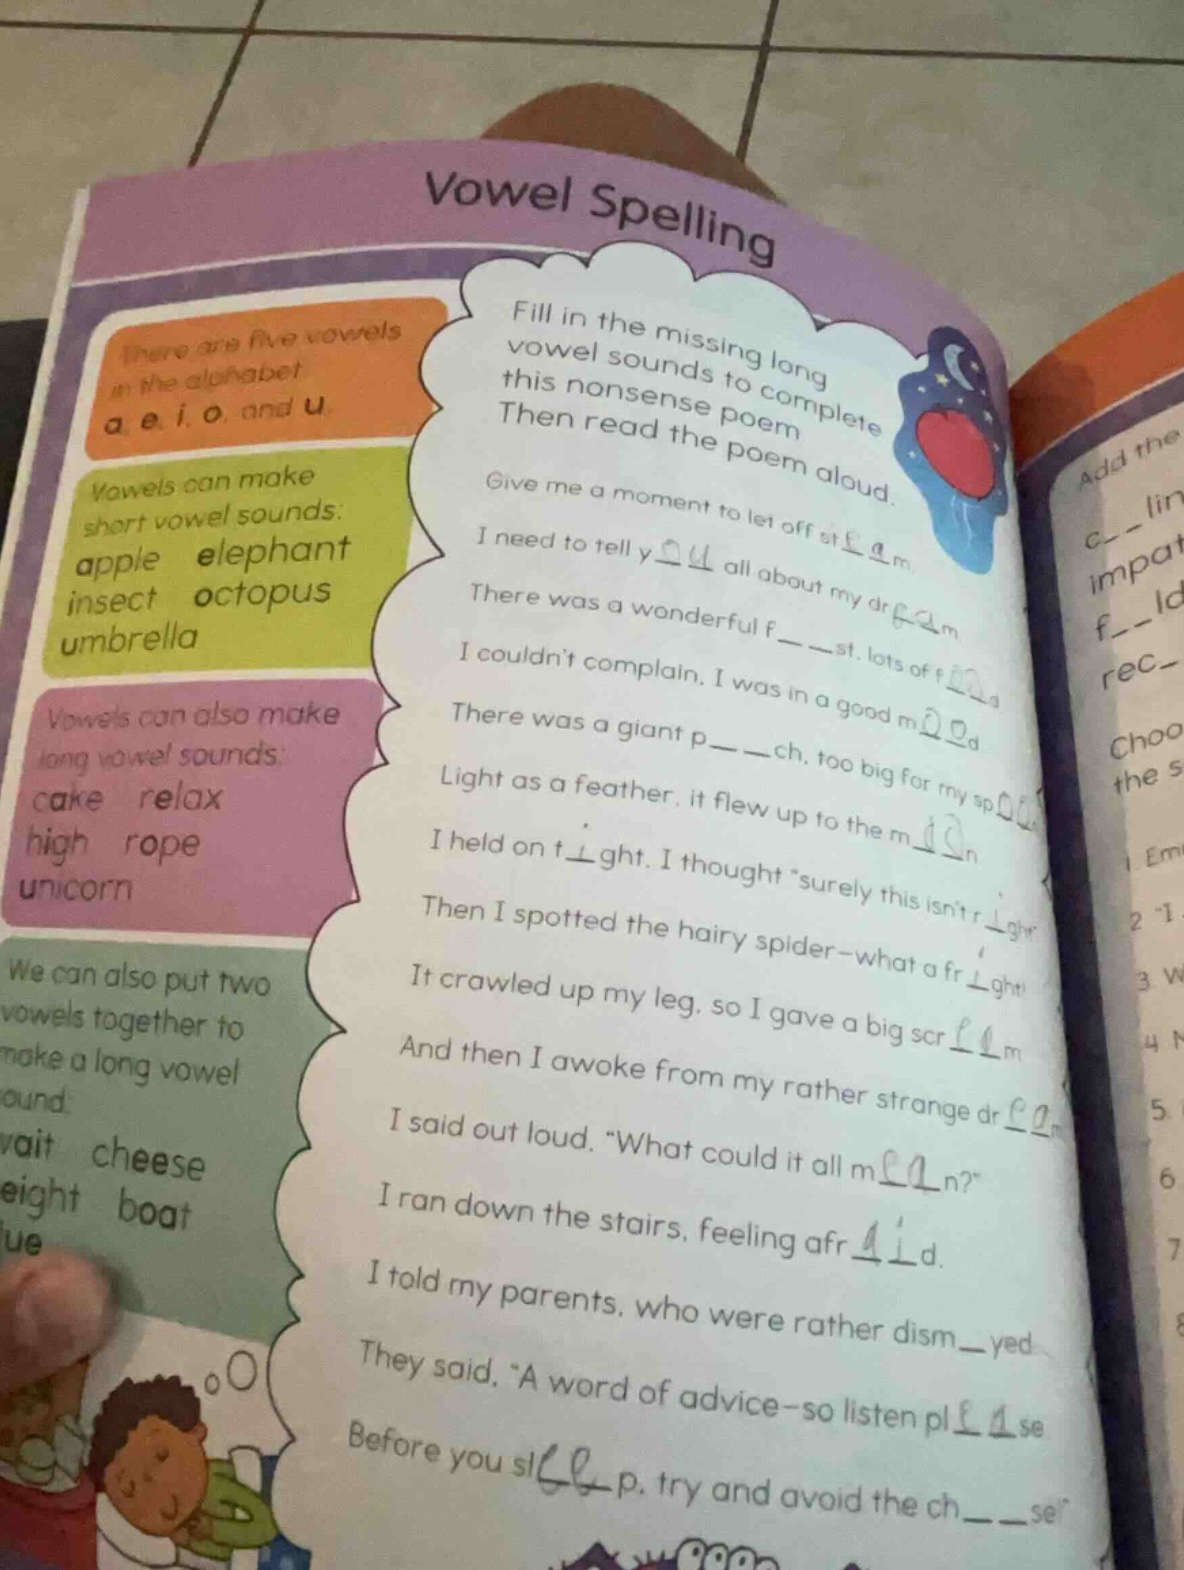 Vowel Spelling
There are five vowels
in the alphabet
a, e, i, o, and u.
Vowels can make
short vowel sounds:
apple elephant
insect octopus
umbrella
Vowels can also make
long vowel sounds:
cake relax
high rope
unicorn
We can also put two
vowels together to
make a long vowel
ound:
wait cheese
eight boat
lue
Fill in the missing long
vowel sounds to complete
this nonsense poem
Then read the poem aloud.
Give me a moment to let off steam
I need to tell you all about my dream
There was a wonderful f__ __st, lots of f
I couldn't complain, I was in a good mood
There was a giant p__ __ch, too big for my spoo
Light as a feather, it flew up to the m
I held on tight. I thought "surely this isn't right"
Then I spotted the hairy spider–what a fright!
It crawled up my leg, so I gave a big screem
And then I awoke from my rather strange dream
I said out loud, "What could it all mean?"
I ran down the stairs, feeling afraid.
I told my parents, who were rather dism__yed
They said, "A word of advice–so listen please
Before you sleep, try and avoid the ch__ __se!"
Add the
c__ __lin
impat
f__ __ld
rec__
Choo
the s
1. Em
2 "I
3. W
4
5.
6
7